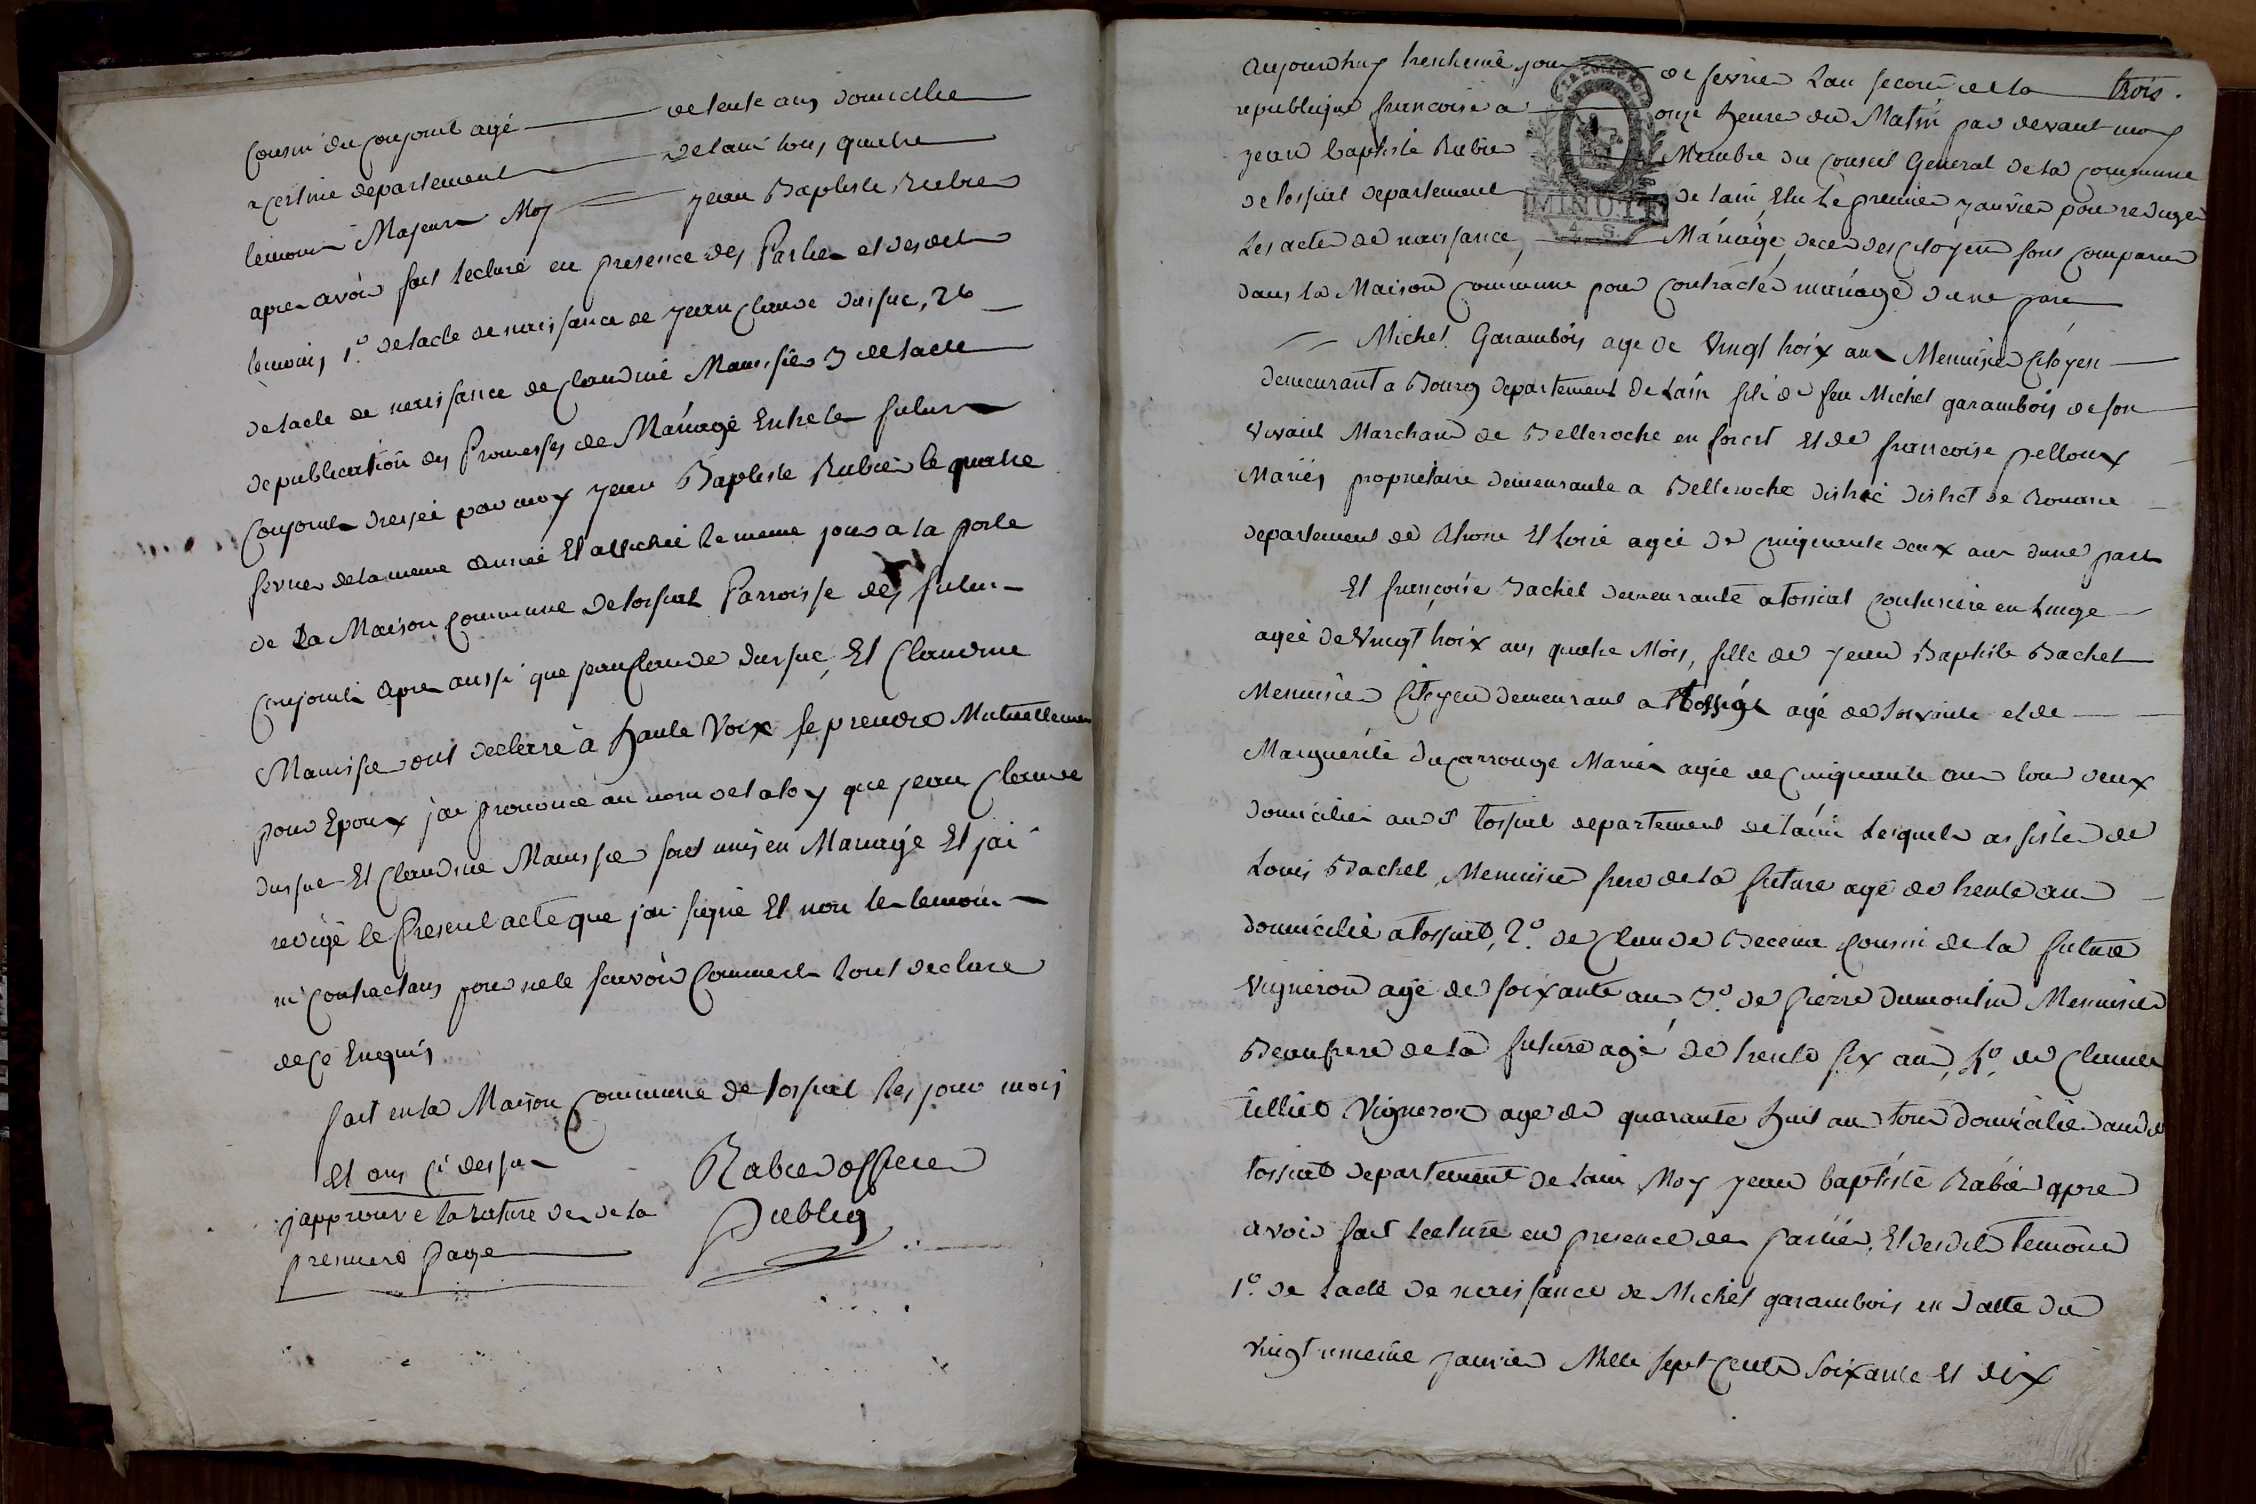 Cousin du Conjoint agé de trente ans domicilie
a Certine departement de lain tous quatre
temoins Majeurs Moy jean Baptiste Rubier
apres avoir fait lecture en presence des Parties et desdits
temoins, 1.º de lacte de naissance de jean Claude dursue, 2º
de lacte de naissance de Claudine Maussier 3 de lacte
de publication des Promesses de Mariage Entre les futurs
Conjoints dressée par moy jean Baptiste Rubier le quatre
fevrier de la meme année Et affichée le meme jour a la porte
de La Maison commune de tossiat Parroisse des futurs
Conjoints apres aussi que jean Claude dursue, Et Claudine
Maussier ont declaré à haute Voix se prendre Mutuellement
pour Epoux jai prononcé au nom de la loy que jean Claude
dursue Et Claudine Maussier sont unis en Mariage Et jai
redigé le Present acte que jai signé Et non les temoins
ni Contractans pour ne le sçavoir Comme ils Lont declaré
de Ce Enquis
fait en la Maison Commune de tossiat les jour mois
Et ans Ci dessus
japprouve la rature de la
premiere page
Rabier officier
Public
trois .
aujourdhuy treizieme jour de fevrier Lan second de la
republique francoise a onze heure du Matin par devant moy
jean baptiste Rubier Membre du Conseil General de la Commune
de tossiat departement de lain Elu Le premier janvier pour rediger
Les actes de naissance, Mariage, deces des Citoyens sont comparus
dans la Maison Commune pour Contracter mariage dune part
MINUTE
4. S.
Michel Garambois age de Vingt troix ans Menuisier Citoyen
demeurant a Bourg departement de Lain fils de feu Michel garambois de son
Vivant Marchand de Belleroche en forest Et de francoise pelloux
Mariés proprietaire demeurante a Belleroche district de Rouane
departement de Rhone Et Loire agée de Cinquante deux ans dune part
Et françoise Bachel demeurante a tossiat Couturiere en Linge
agée de Vingt troix ans quatre Mois, fille de jean Baptiste Bachel
Menuisier Citoyen demeurant a tossiat agé de soixante et de
Marguerite ducarrouge Mariés agée de Cinquante ans tous deux
domiciliés audt tossiat departement de lain Lesquels assistés de
Louis Bachel, Menuisier frere de la future agé de trente ans
domicilié a tossiat, 2º. de Claude Becerne Cousin de la future
Vigneron agé de soixante ans 3º. de Pierre dumoulin Menuisier
Beaufrere de la future agé de trente six ans, 4º. de Claude
tilliet Vigneron age de quarante huit ans tous domiciliés aud
tossiat departement de lain Moy jean baptiste Rabier apres
avoir fait lecture en presence des parties, Et desdits temoins
1º. de Lacte de naissance de Michel garambois en datte du
Vingt unieme janvier Mille sept Cents soixante Et dix